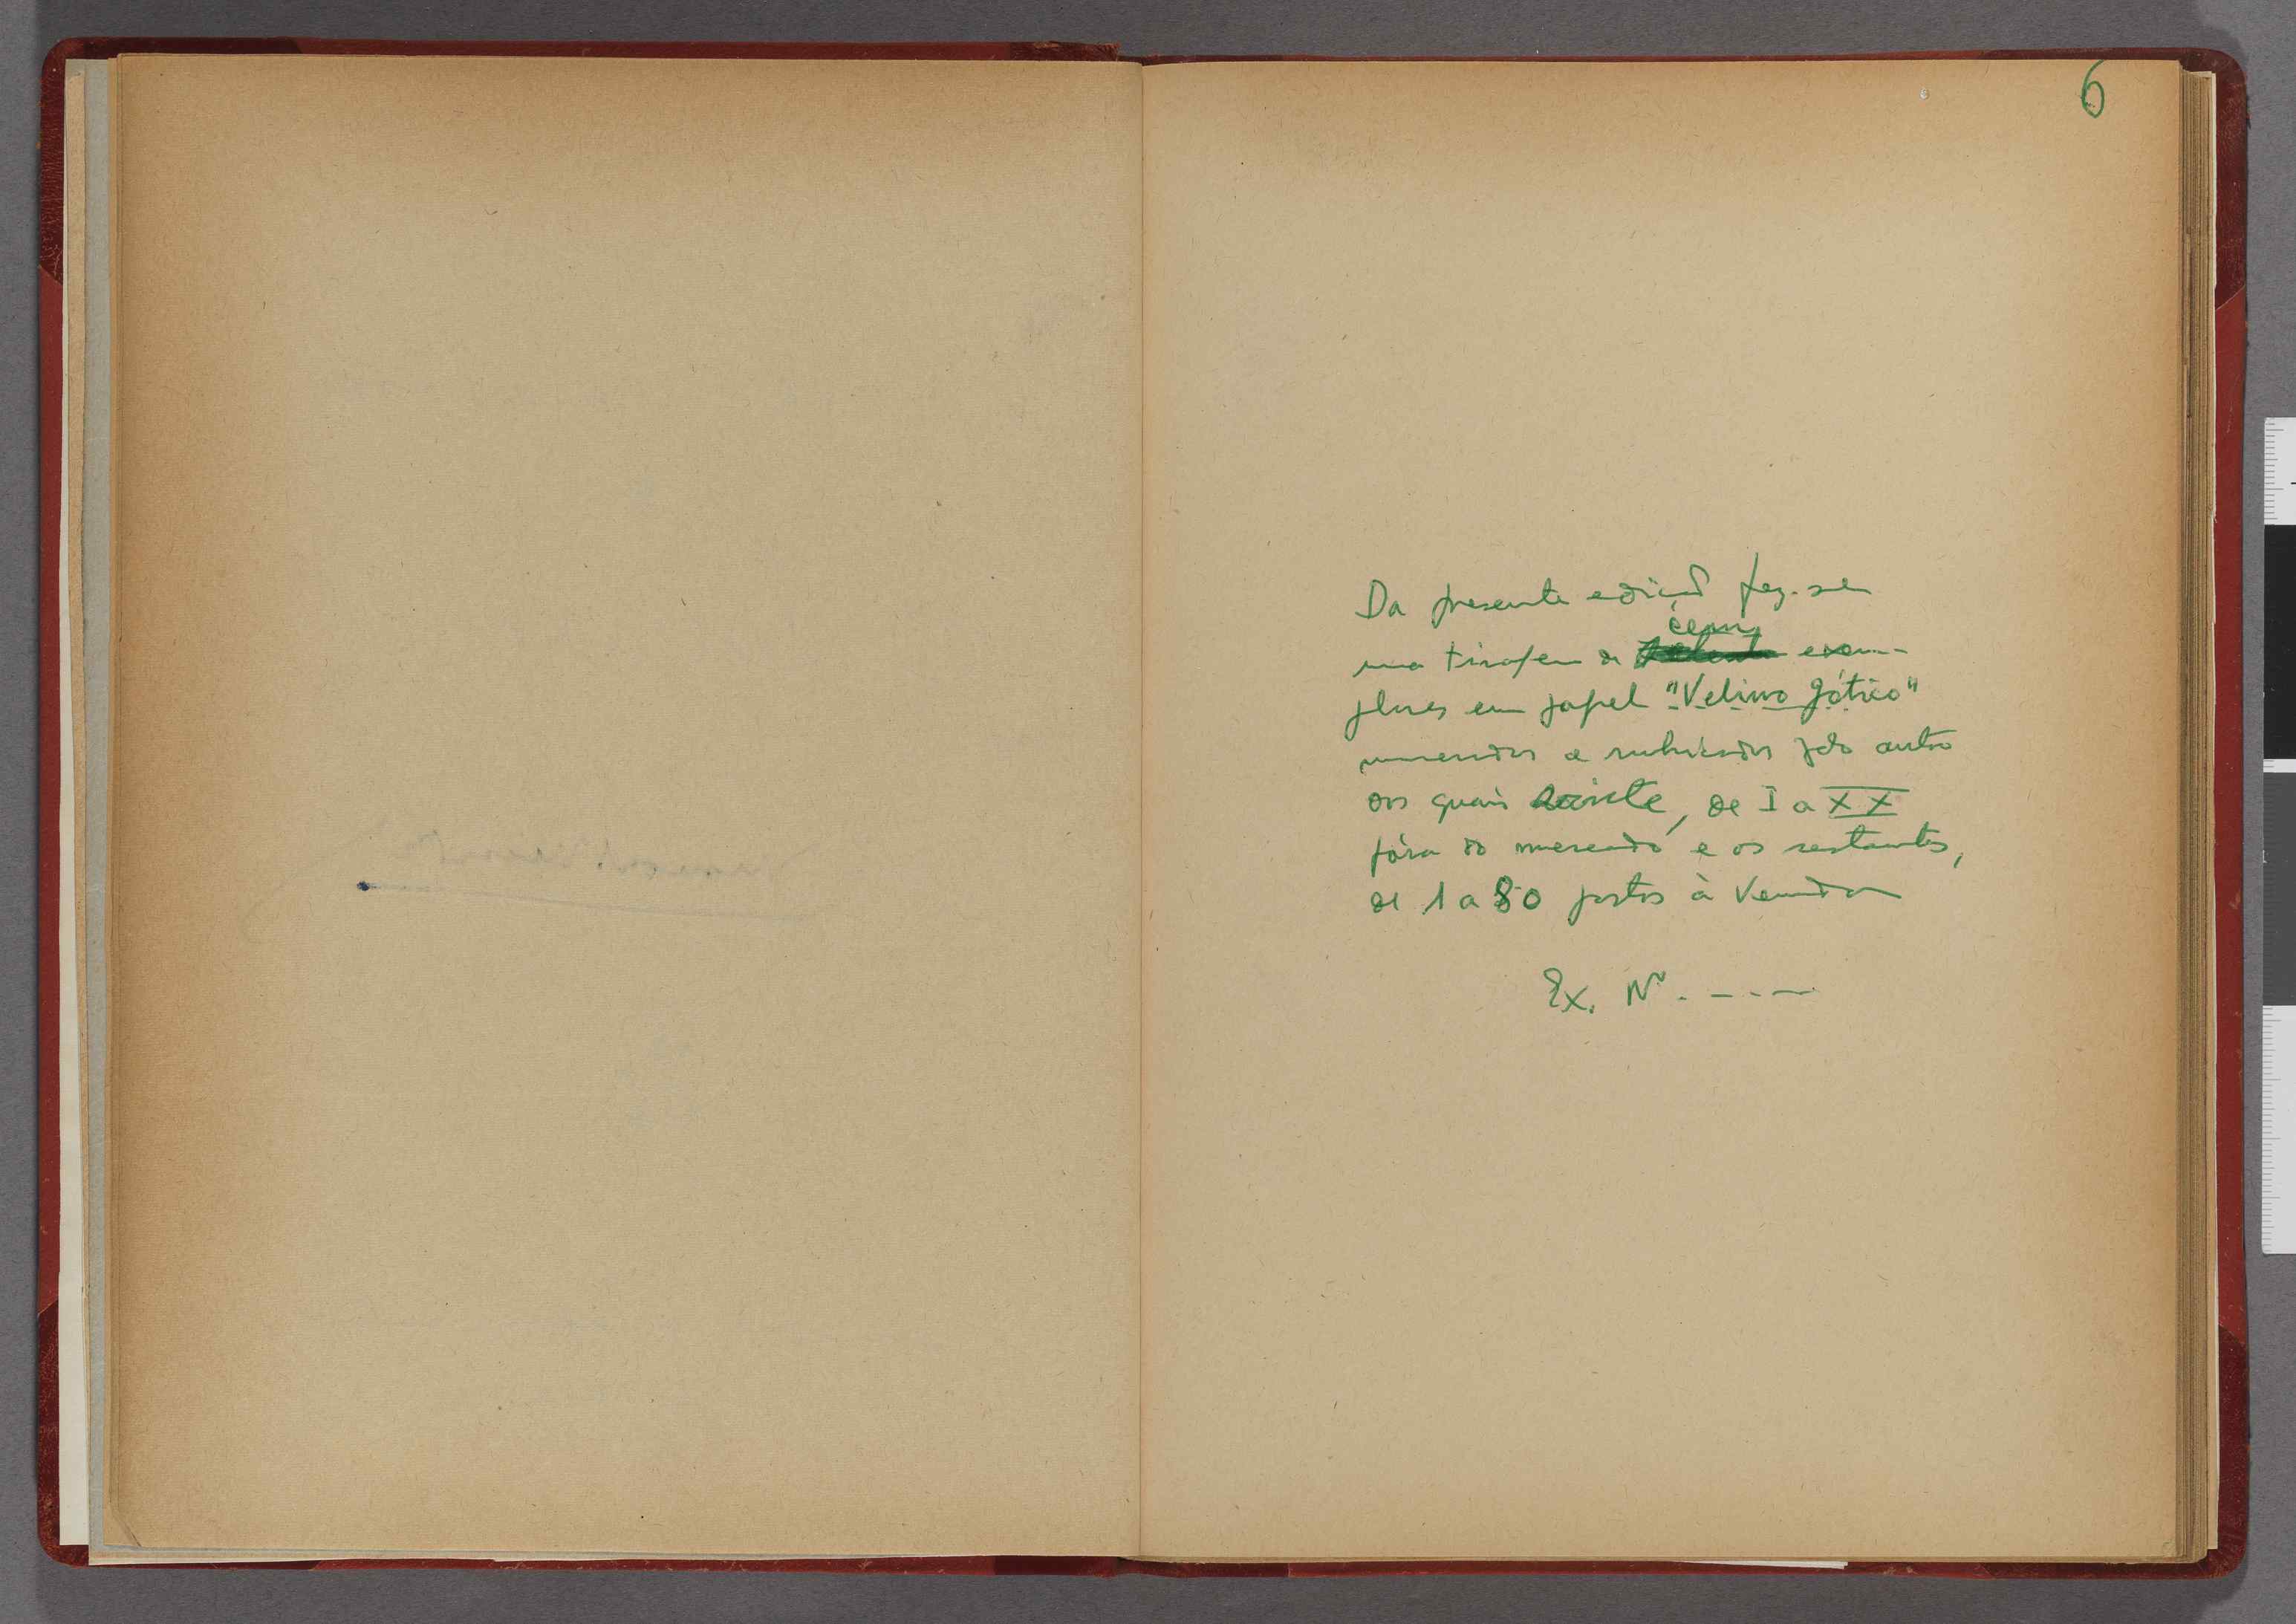 6
Da presente edição fez-se
cem
uma tiragem de exem-
plares em papel "Velino Gótico"
numerados e rubricados pelo autor
dos quais vinte, de I a XX
fóra do mercado e os restantes,
de 1 a 80 postos à venda
Ex. Nº. - - - -